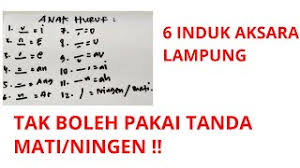 ANAK HURUF :
1. = i 7. = U
2. = E 8. = O
3. = e 9. = au
4. = an 10. = ai
5. = Ang 11. = ah
6. = Ar 12. / = ningen / mati.
6 INDUK AKSARA
LAMPUNG
TAK BOLEH PAKAI TANDA
MATI/NINGEN !!